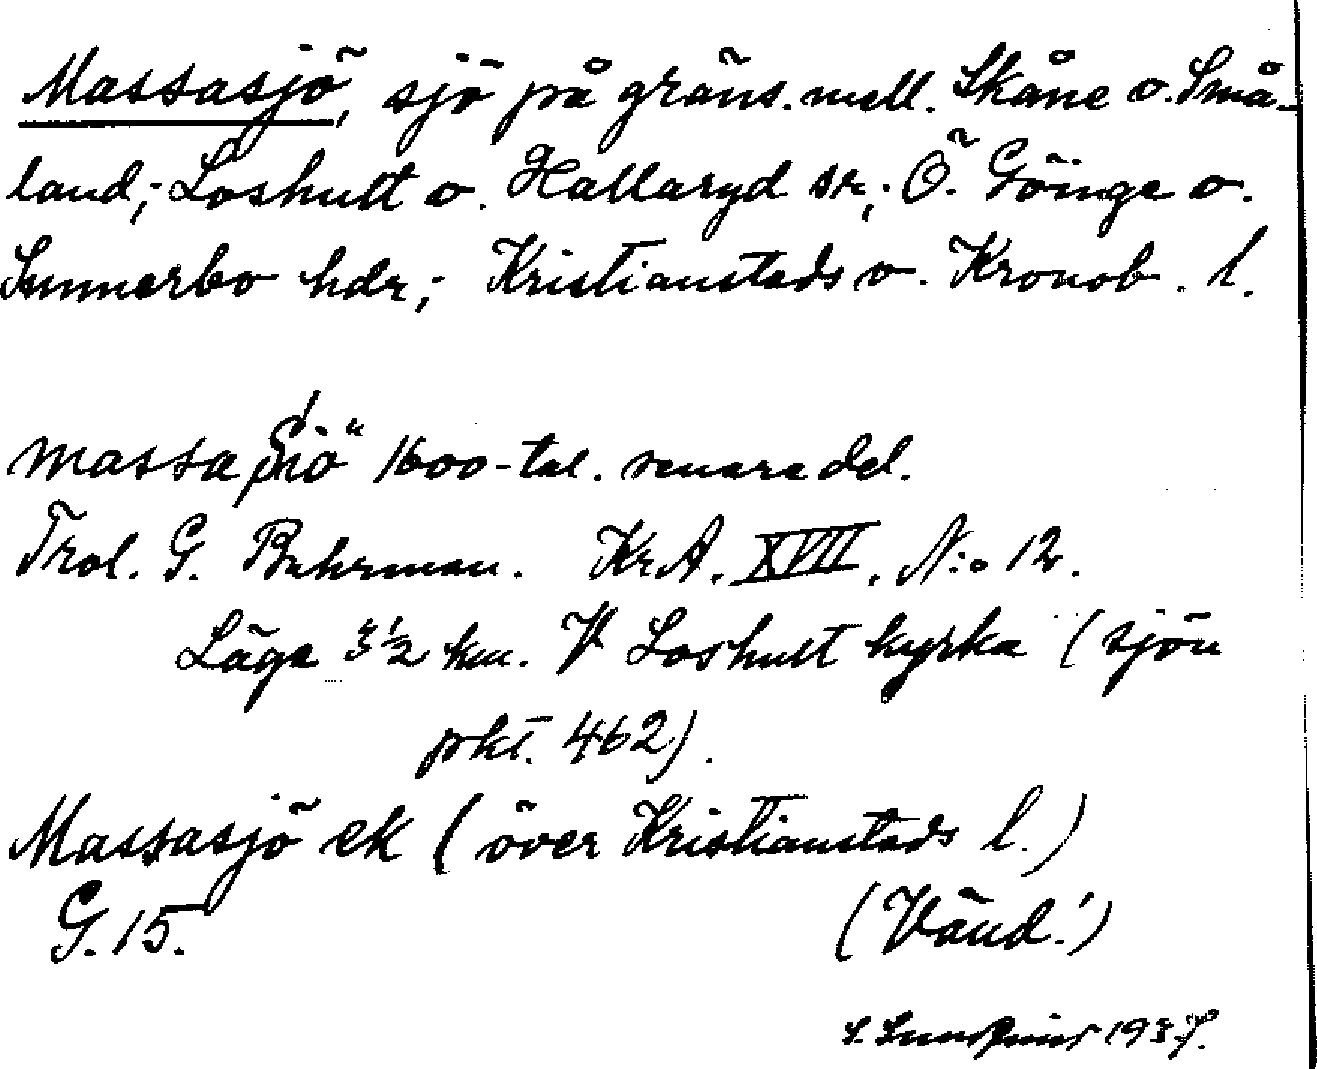 Massasjö, sjö på gräns. mell. Skåne o. Små-
land; Loshult o. Hallaryd sr; Ö. Göinge o.
Sunnerbo hdr; Kristianstads o. Kronob. l.
massa Siö" 1600-tal. senare del.
Trol. G. Buhrman. KrA. XVII. N:o 12.
Läge 3 1/2 km. V Loshult kyrka (sjön
pkt. 462).
Massasjö ek (över Kristianstads l.)
G. 15.
(Vänd!)
S. Sundqvist 1937.